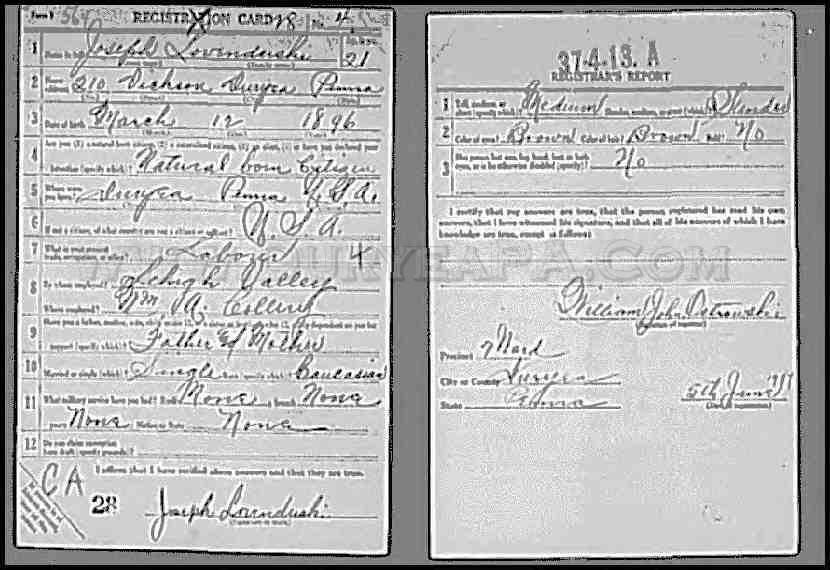 Form 1 564 REGISTRATION CARD 28 No. 4
1 Name in full Joseph Lovinduski Age, in yrs. 21
(Given name) (Family name)
2 Home address 210 Dickson Duryea Penna
(No.) (Street) (City) (State)
3 Date of birth March 12 1896
(Month) (Day) (Year)
4 Are you (1) a natural-born citizen, (2) a naturalized citizen, (3) an alien, (4) or have you declared your
intention (specify which)? Natural born Citizen
5 Where were you born? Duryea Penna U.S.A.
6 If not a citizen, of what country are you a citizen or subject? U.S.A.
7 What is your present trade, occupation, or office? Laborer 4
8 By whom employed? Lehigh Valley
Where employed? Wm A. Colliery
9 Have you a father, mother, wife, child under 12, or a sister or brother under 12, solely dependent on you for
support (specify which)? Father & Mother
10 Married or single (which)? Single Race (specify which)? Caucasian
11 What military service have you had? Rank None branch None
years None Nation or State None
12 Do you claim exemption from draft (specify grounds)?
I affirm that I have verified above answers and that they are true.
CA
28 Joseph Lovinduski
(Signature or mark)
37-4-13. A
REGISTRAR'S REPORT
1 Tall, medium, or short (specify which)? Medium Slender, medium, or stout (which)? Slender
2 Color of eyes? Brown Color of hair? Brown Bald? No
3 Has person lost arm, leg, hand, foot, or both eyes, or is he otherwise disabled (specify)? No
I certify that my answers are true, that the person registered has read his own
answers, that I have witnessed his signature, and that all of his answers of which I have
knowledge are true, except as follows:
William John Ostrowski
(Signature of registrar)
Precinct 2 Ward
City or County Duryea
State Penna 5th June 1917
(Date of registration)
WWW.DURYEAPA.COM